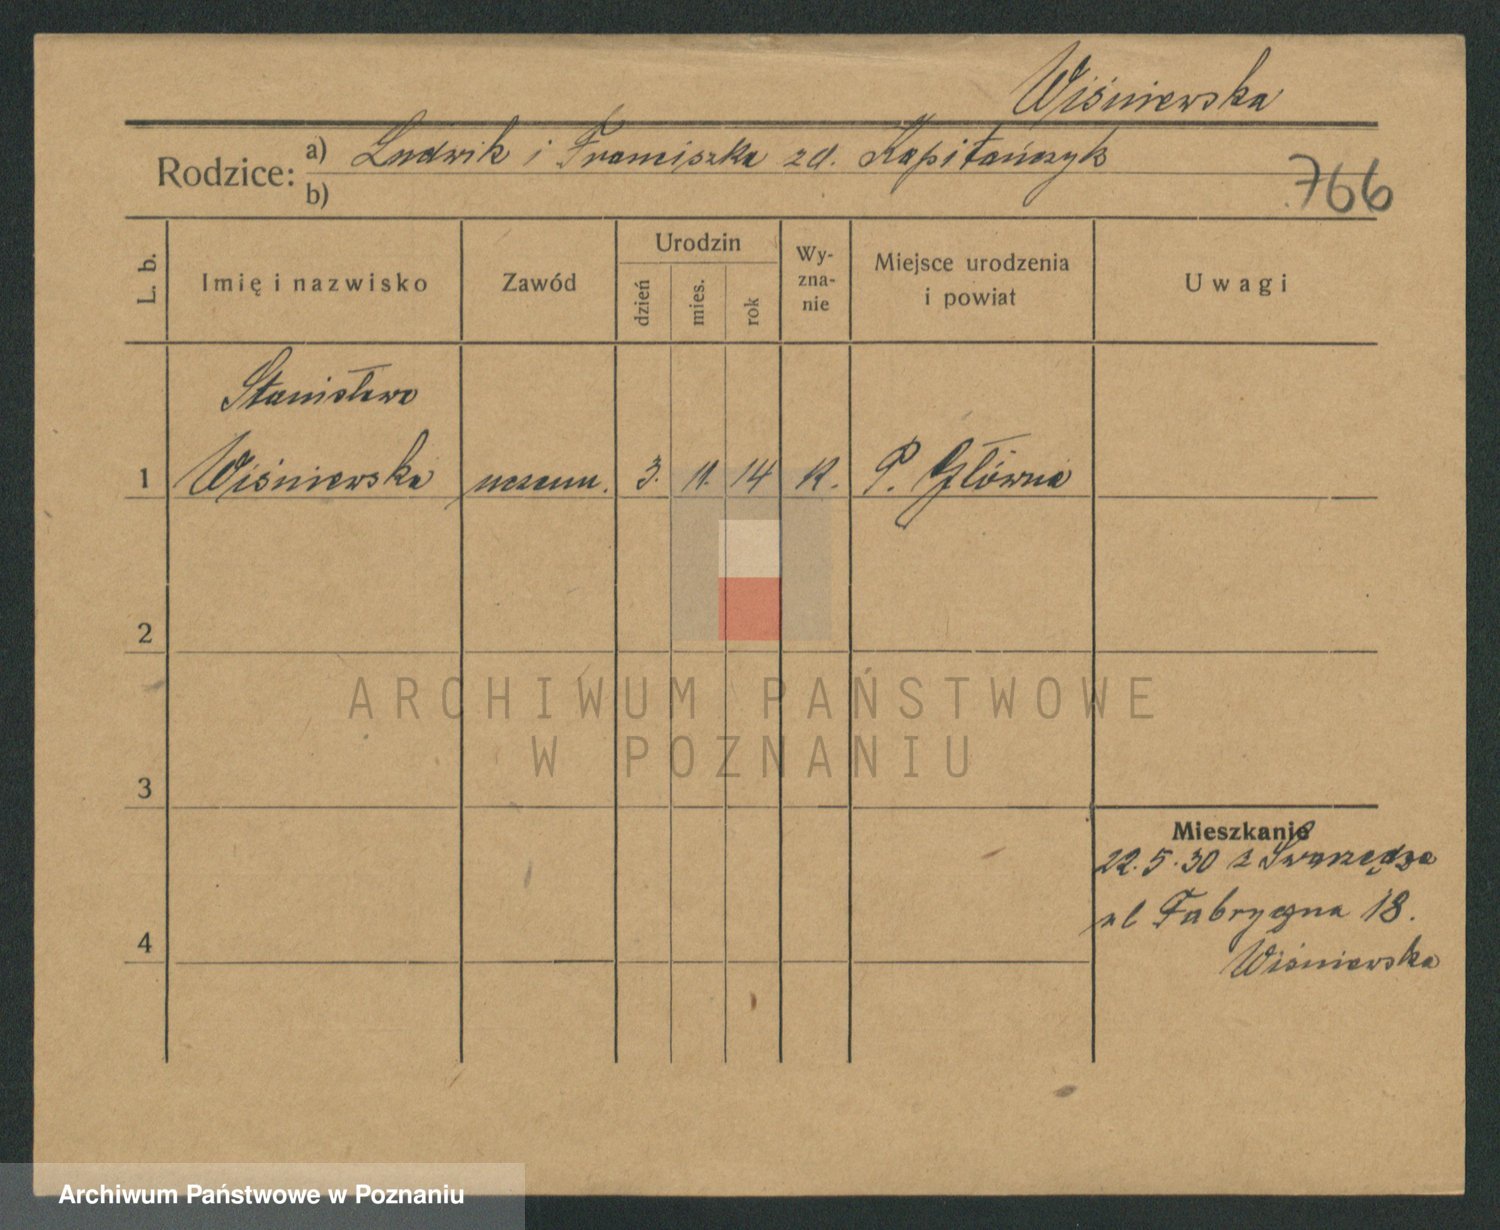 Wiśniewska
Rodzice: a) Ludwik i Franciszka zd. Kapitańczyk
b)
766
L. b.
Imię i nazwisko
Zawód
Urodzin
dzień
mies.
rok
Wy-
zna-
nie
Miejsce urodzenia
i powiat
Uwagi
Stanisława
1 Wiśniewska uczenn. 3. 11. 14 K. P. Główna
2
3
4
Mieszkanie
22.5.30 z Swarzędza
ul Fabryczna 18.
Wiśniewska
ARCHIWUM PAŃSTWOWE
W POZNANIU
Archiwum Państwowe w Poznaniu